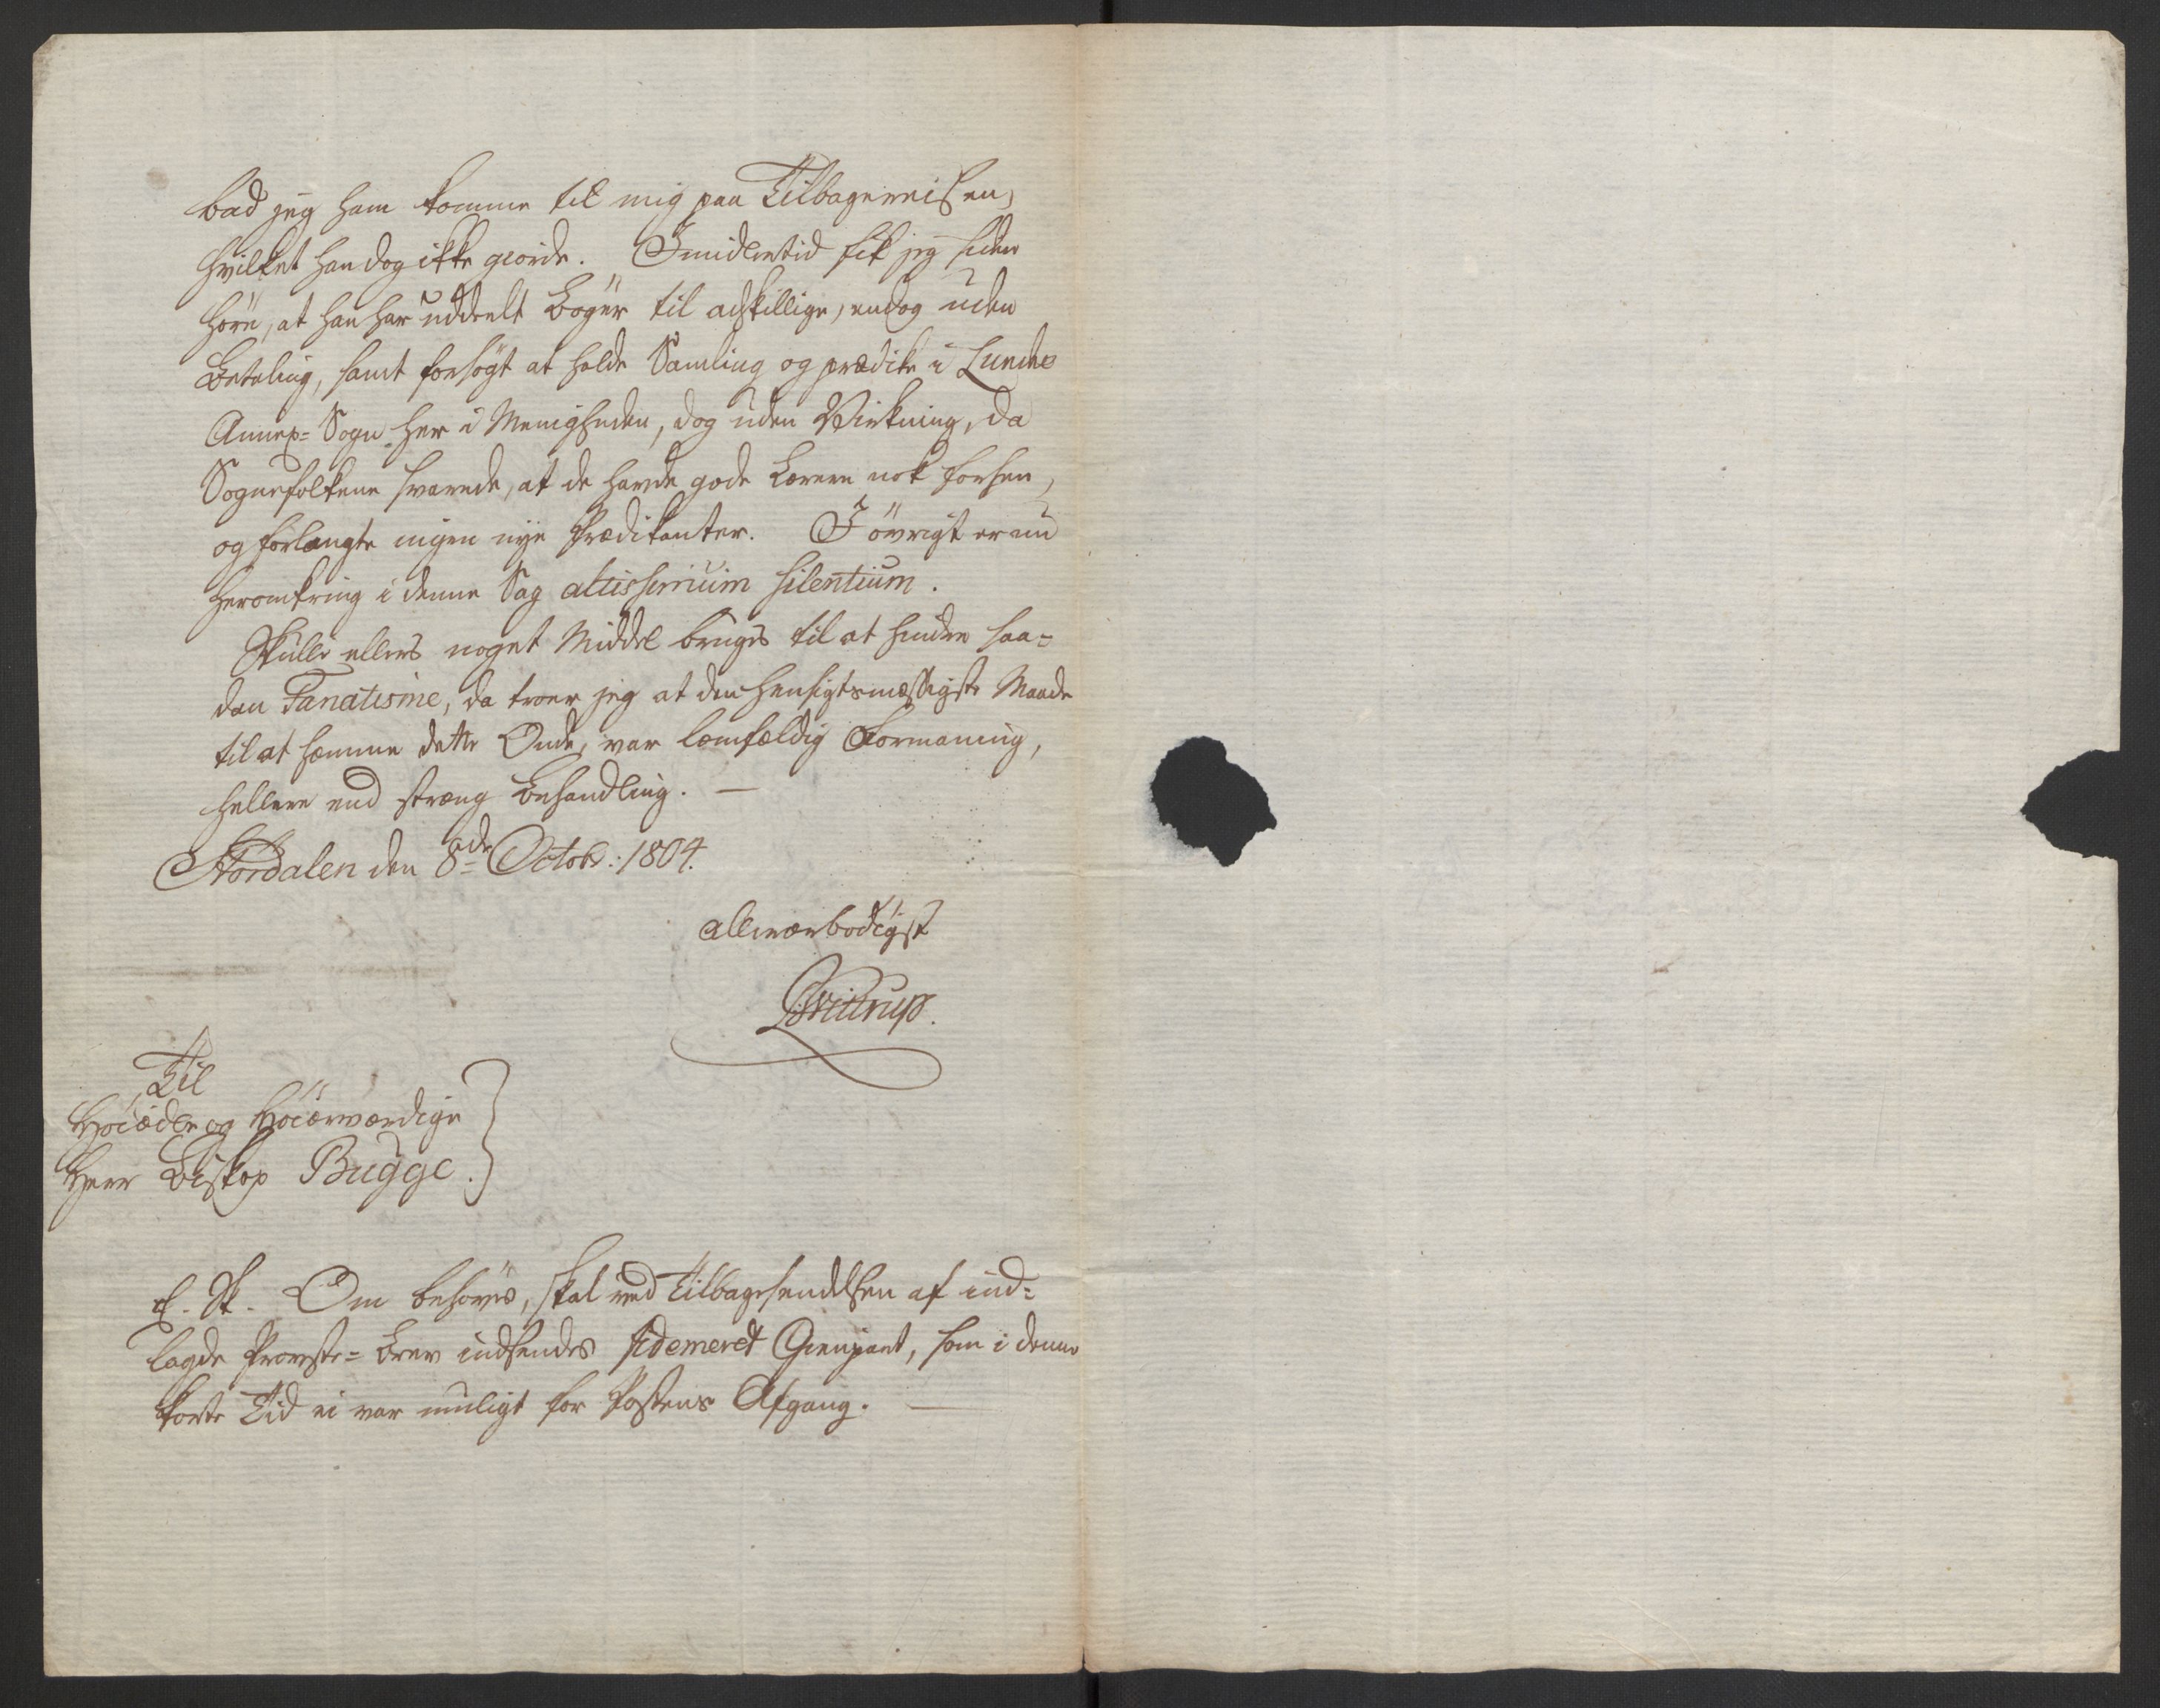 bad jeg ham komme til mig paa Tilbagereisen,
hvilket han dog ikke giorde. Imidlertid fik jeg siden
høre, at han har uddeelt Bøger til adskillige, endog uden
Betaling, samt forsøgt at holde Samling og prædike i Lunde
Annex- Sogn her i Menigheden, dog uden Virkning, da
Sognefolkene svarede, at de havde gode Lærere nok forhen,
og forlangte ingen nye Prædikanter. I øvrigt er nu
heromkring i denne Sag altissimum silentium.
Skulle ellers noget Middel bruges til at hindre saa-
dan Fanatisme, da troer jeg at den hensigtsmæssigste Maade
til at hæmme dette Onde, var lemfældig Formaning,
hellere end stræng Behandling. —
Stordalen den 8de Octobr: 1804.
allerærbødigst
Strutrup.
Til
Høiædle og Høiærværdige
Herr Biskop Bugge.
E. Sk. Om behøves, skal ved Tilbagesendelsen af ind-
lagde Provste- Brev indsendes fidemeret Gienpart, som i denne
korte Tid ei var muligt for Postens Afgang. —